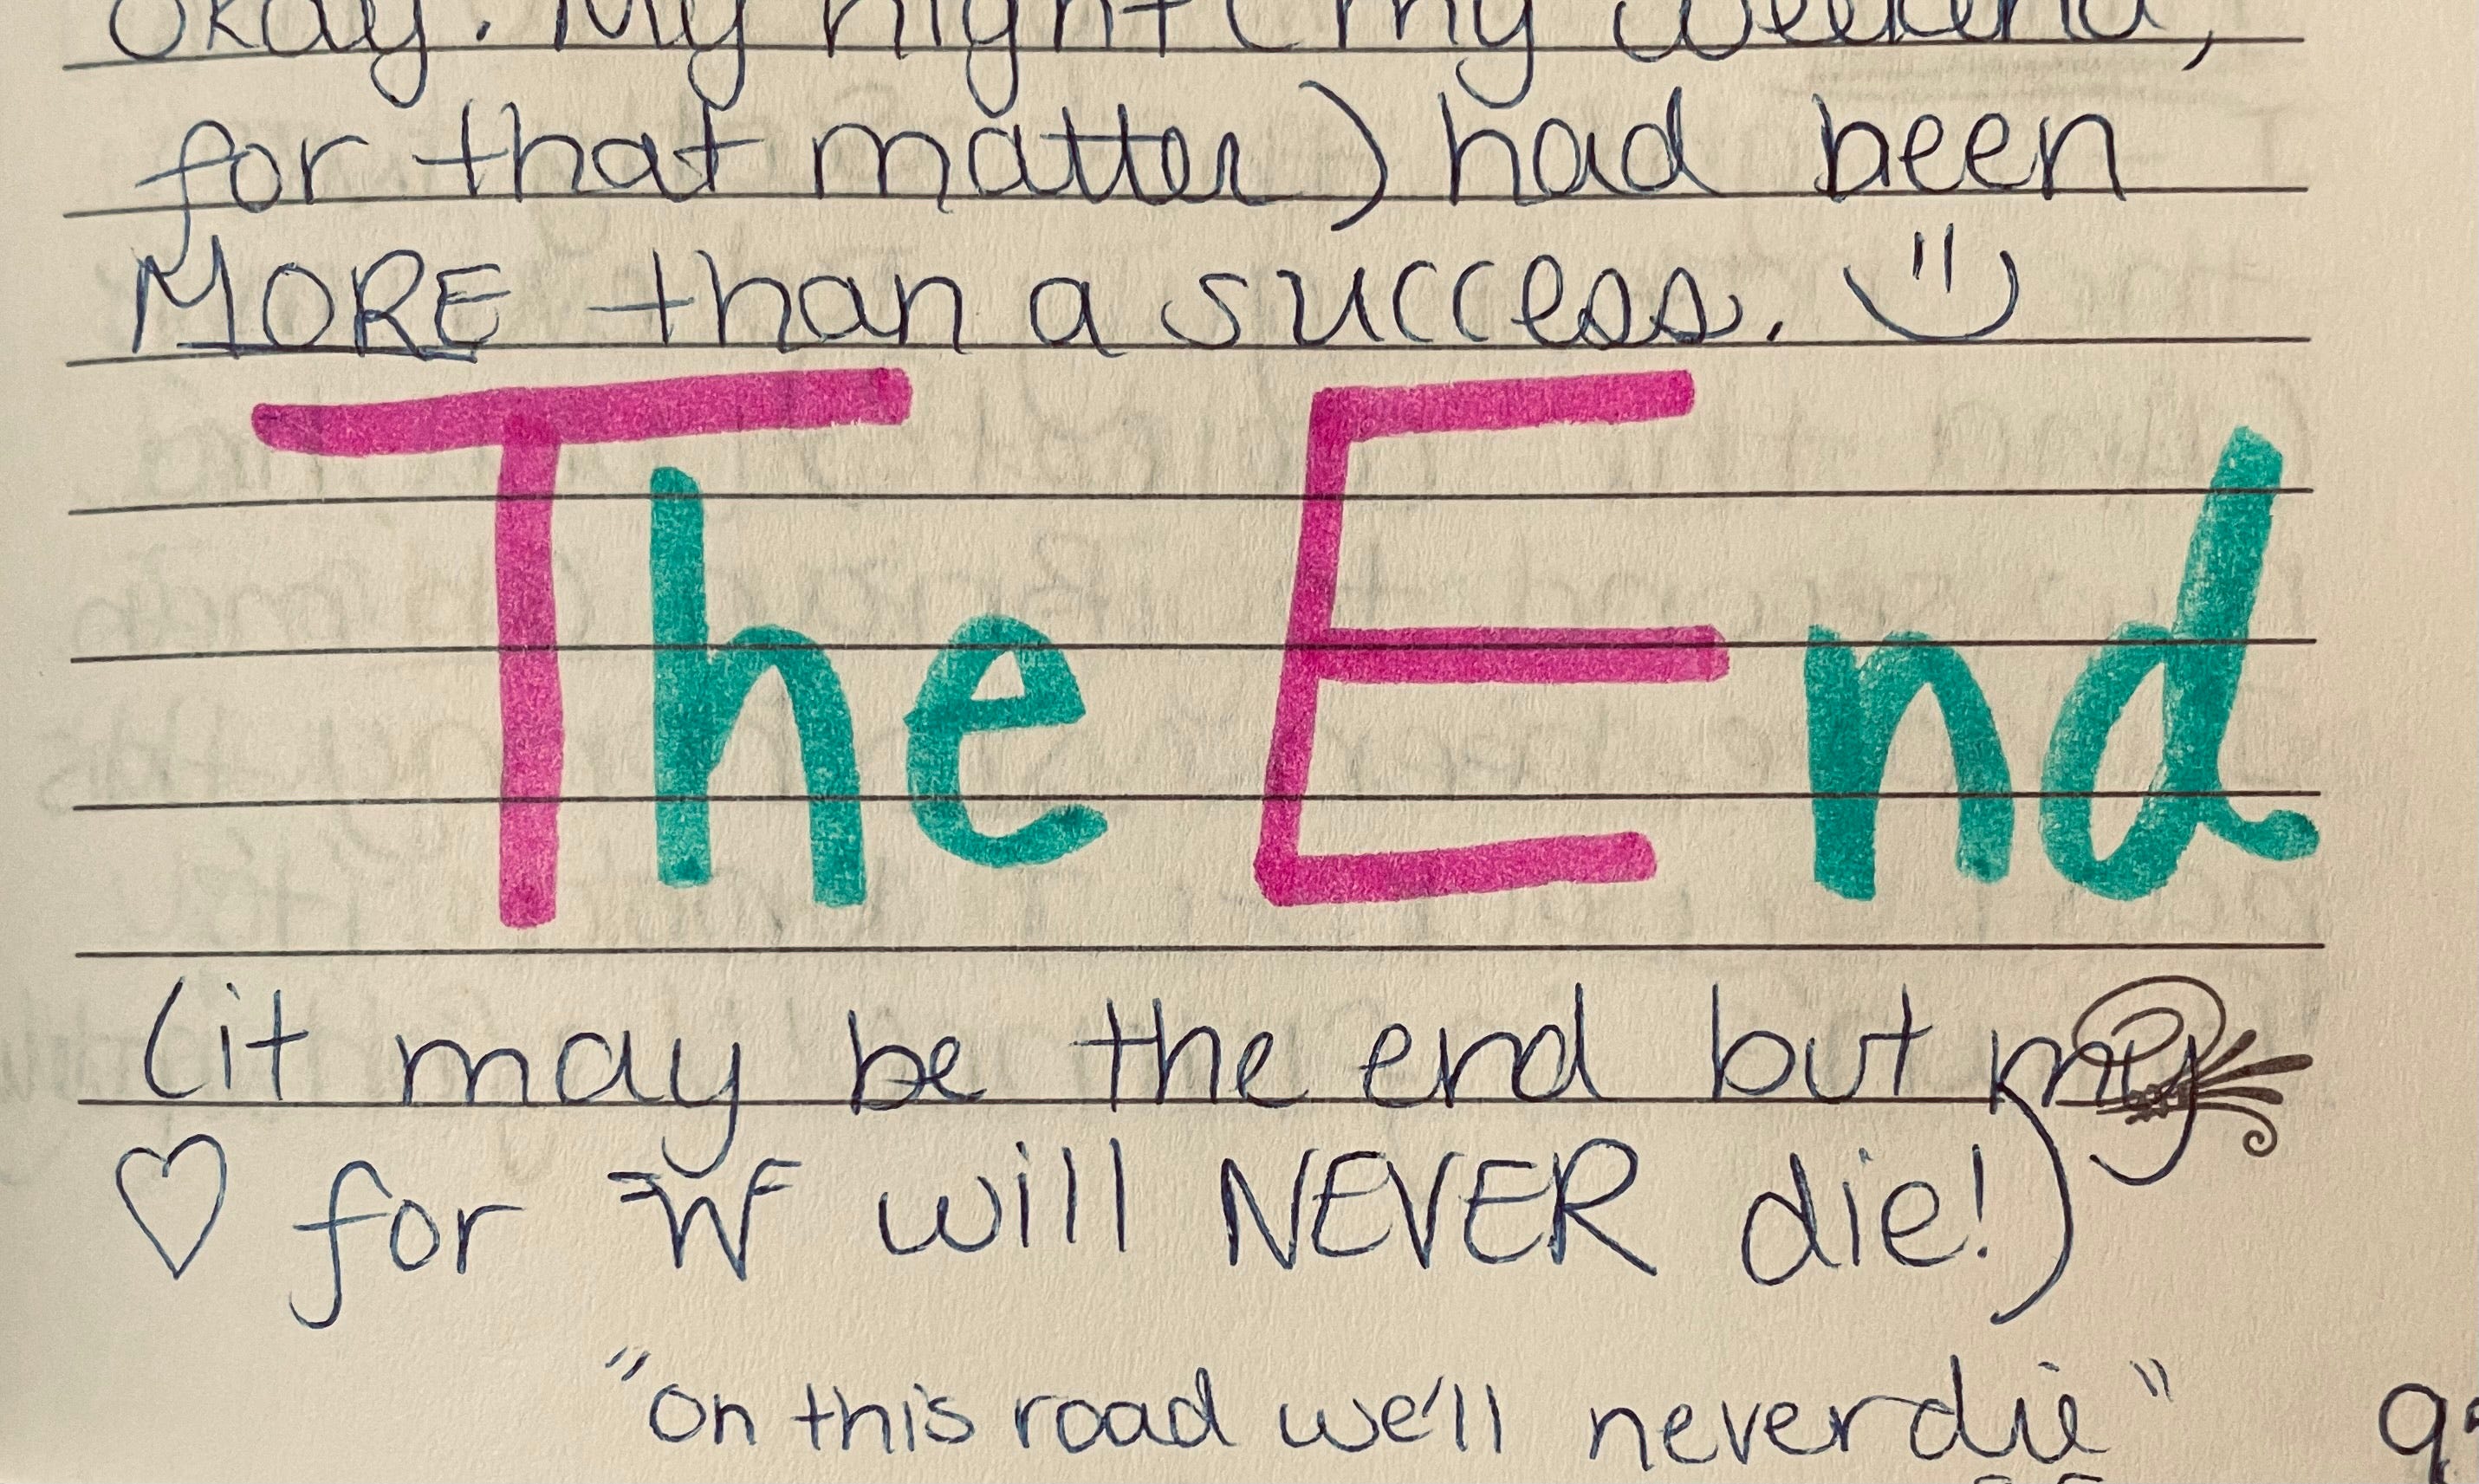 okay. My night (my weekend,
for that matter) had been
MORE than a success.
The End
(it may be the end but my
♡ for will NEVER die!)
"on this road we'll never die"